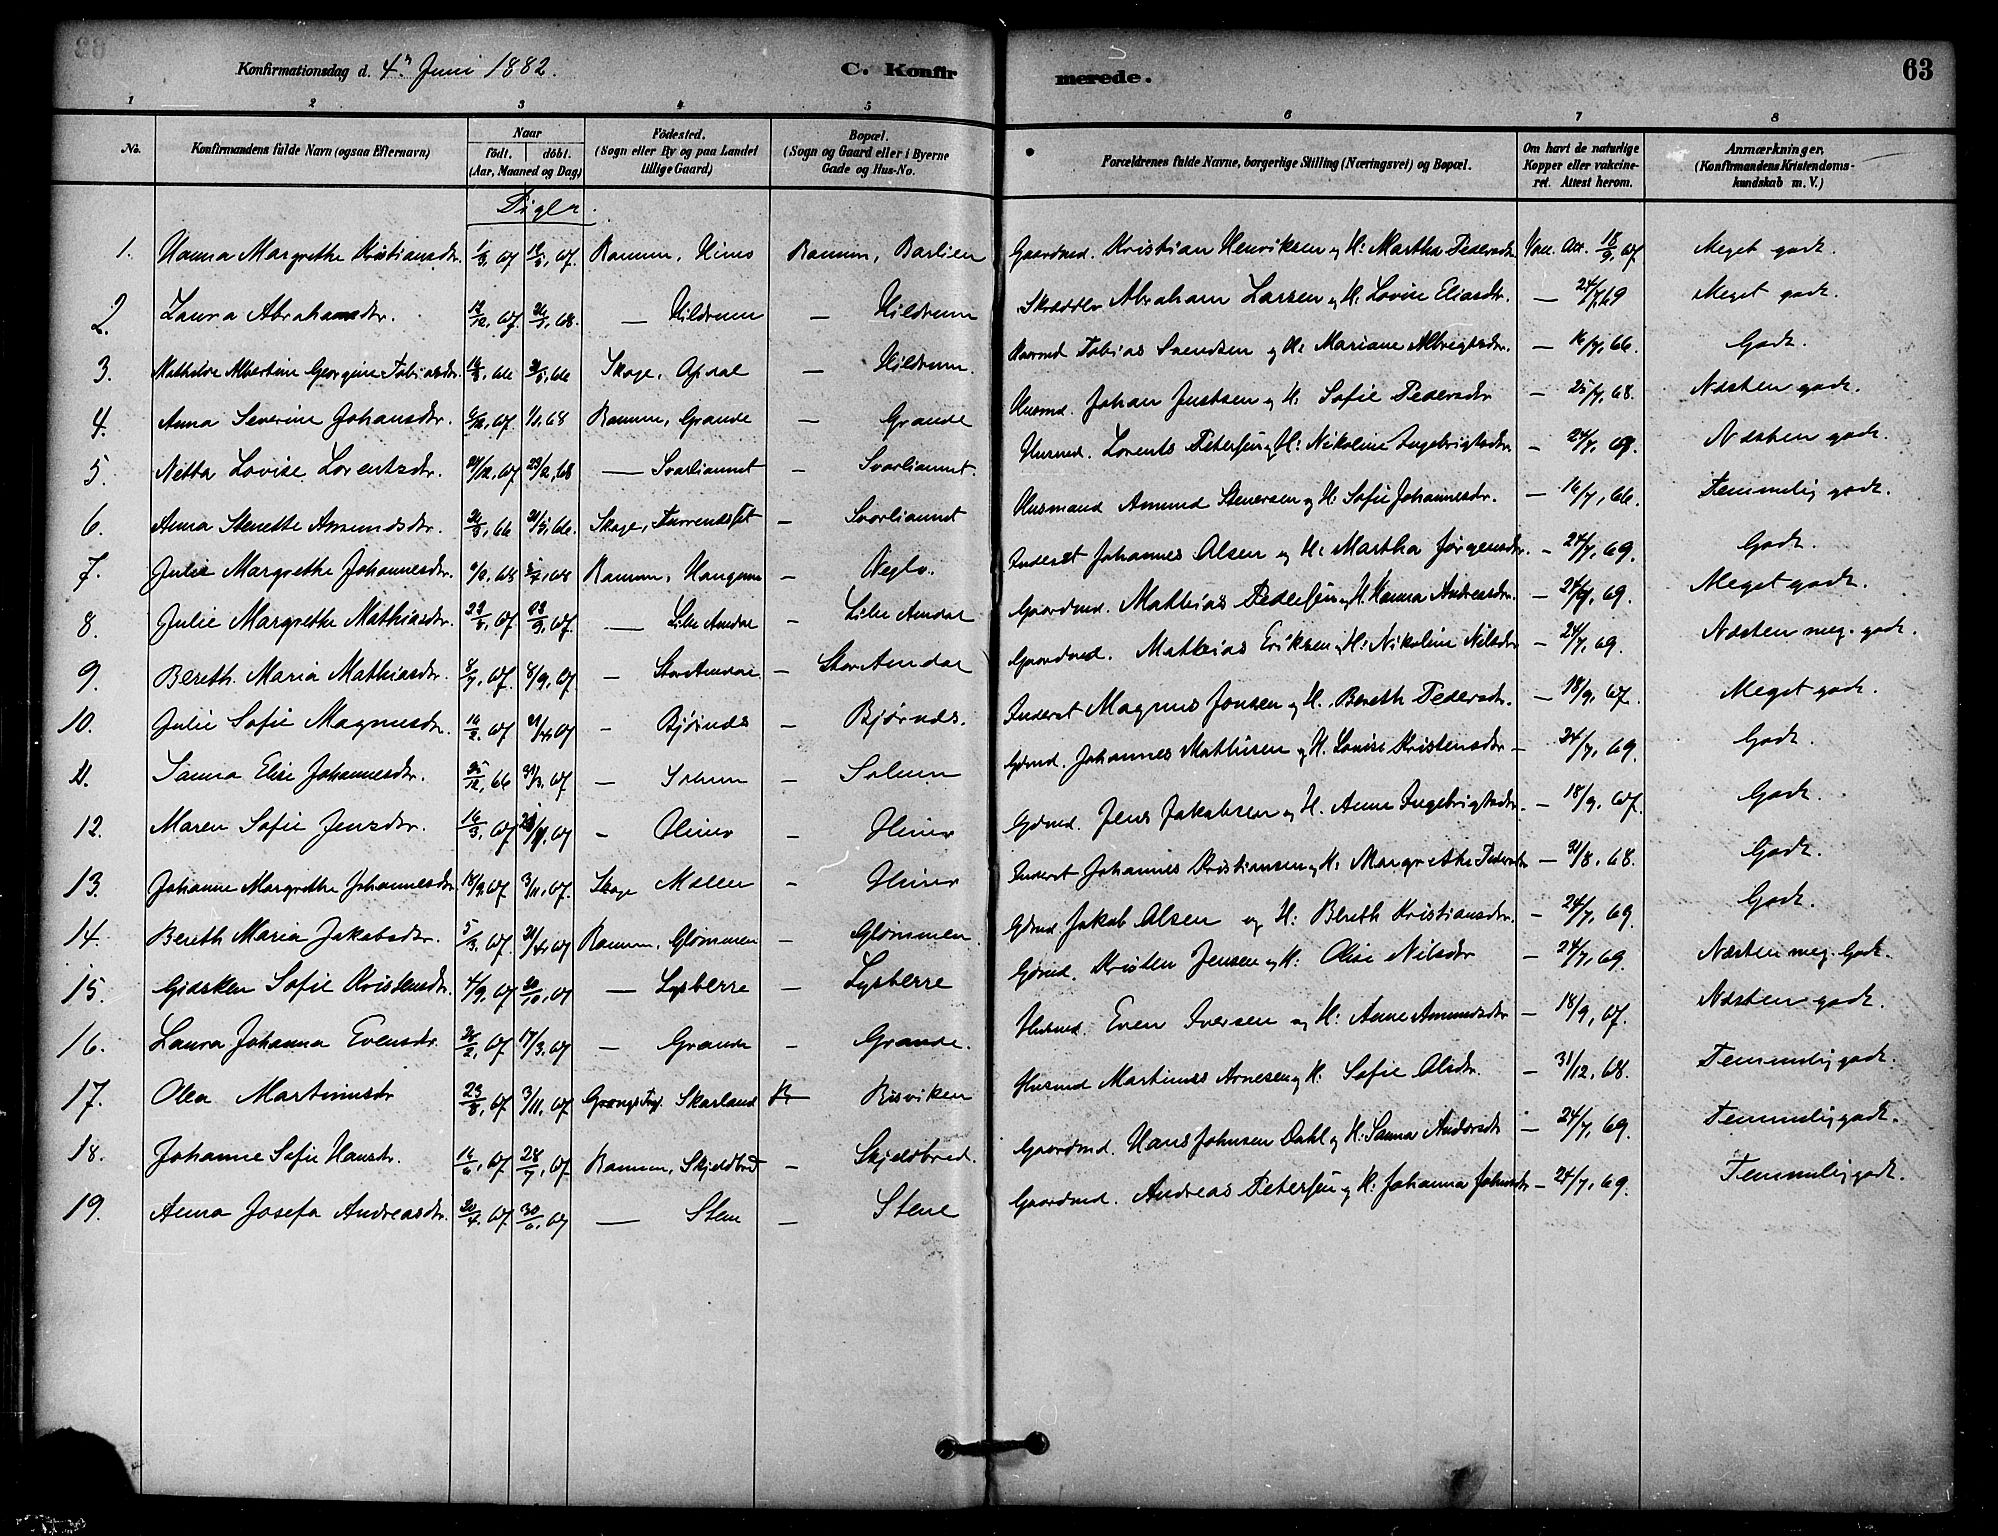 Konfirmationsdag d. 4de Juni 1882. C. Konfirmerede. 63
1 2 3 4 5 6 7 8
No. Konfirmandens fulde Navn (ogsaa Efternavn) Naar födt. döbt. (Aar, Maaned og Dag) Födested. (Sogn eller By og paa Landet tillige Gaard) Bopæl. (Sogn og Gaard eller i Byerne Gade og Hus-No. Forældrenes fulde Navne, borgerlige Stilling (Næringsvei) og Bopæl. Om havt de naturlige Kopper eller vakcineret. Attest herom. Anmærkninger, (Konfirmandens Kristendomskundskab m. V.)
Piger.
1. Hanna Margrethe Kristiansdtr. Ranum, Himo Ranum, Barlien Gaardmd. Kristian Henriksen og H: Martha Pedersdtr. Vacc. Att. 18/9, 67 Meget godt.
2. Laura Abrahamsdtr. 12/12, 67. — Hildrum — Hildrum Skrædder Abraham Larsen og H. Lovise Eliasdtr. — 24/7, 69 Meget godt.
3. Mathilde Albertine Georgine Tobiasdtr. Skage, — Hildrum. Tobias Svendsen og H: Mariane Albrigtsdtr. — 16/7, 66. Godt.
4. Anna Severine Johansdtr. Ranum, Grande — Grande Husmd. Johan Justsen og H. Sofie Pedersdtr — 25/7, 68. Næsten godt.
5. Netta Lovise Lorentsdtr. — Svarliaunet — Svarliaunet. Husmd. Lorents Petersen og H: Nikoline Ingebrigtsdtr. — 24/7, 69. Næsten godt.
6. Anna Stenette Amundsdtr. Skage, — Svarliaunet Husmand Amund Stenersen og H: Sofie Johannesdtr. — 16/7, 66. Temmelig godt.
7. Julie Margrethe Johannesdtr. Ranum, — Inderst Johannes Olsen og H: Martha Jørgensdtr. — 24/7, 69. Godt.
8. Julie Margrethe Mathiasdtr. — Lille Amdal — Lille Amdal Gaardmd. Mathias Pedersen og H. Hanna Andreasdtr. — 24/7, 69. Meget godt.
9. Bereth Maria Mathiasdtr. 8/7, 67. 8/9, 67. — Stor Amdal — Stor Amdal Gaardmd. Mathias Eriksen og H: Nikoline Nilsdtr — 24/7, 69. Næsten meg. godt.
10. Julie Sofie Magnusdtr. — Bjørnes — Bjørnes. Inderst Magnus Jonsen og H. Bereth Pedersdtr. — 18/9, 67. Meget godt.
11. Sanna Elise Johannesdtr. 25/12, 66 — Solum — Solum Gdmd. Johannes Mathisen og H. Lovise Kristensdtr — 24/7, 69. Godt.
12. Maren Sofie Jensdtr. 16/3, 67 — Himo — Himo Gdmd. Jens Jakobsen og H. Anne Ingebrigtsdtr. — 18/9, 67. Godt.
13. Johanne Margrethe Johannesdtr. 18/9, 67. 3/11, 67. Skage Moen — Himo Inderst Johannes Kristiansen og H: Margrethe Pedersdtr — 31/8, 68. Godt.
14. Bereth Maria Jakobsdtr. 5/3, 67. 21/4, 67 Ranum, Glømmen — Glømmen. Gdmd Jakob Olsen og H: Bereth Kristiansdtr. — 24/7, 69. Godt.
15. Gjdsken Sofie Kristensdtr. 4/9, 67 20/10, 67 — Lysberre — Lysberre Gdmd. Kristen Jensen og H: Oline Nilsdtr — 24/7, 69. Næsten meg. Godt.
16. Laura Johanna Evensdtr. 17/3, 67 — Grande — Grande. Husmd. Even Iversen og H: Anne Amundsdtr — 18/9, 67. Næsten godt.
17. Olea Martinusdtr 23/8, 67 3/11, 67 Skarland — Risviken Husmd Martinus Arnesen og H: Sofie Olsdtr. — 31/12, 68. Temmelig godt.
18. Johanne Sofie Hansdtr. 16/6, 67 28/7, 67 Ranum, Skjeldbred — Skjeldbred. Gaardmd. Hans Johnsen Dahl og H: Sanna Andersdtr — 24/7, 69. Temmelig godt.
19. Anna Josefa Andreasdtr. 20/4, 67. 30/6, 67 — Stene — Stene Gaardmd. Andreas Petersen og H: Johanna Johnsdtr — 24/7, 69. Temmelig godt.